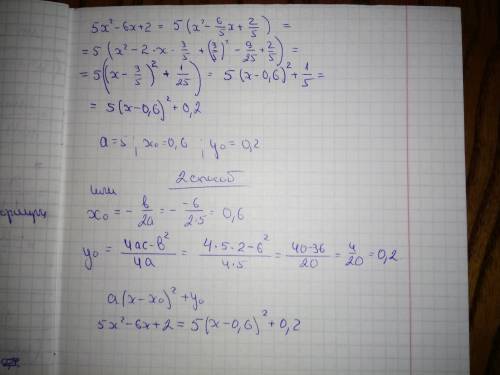 5x²-6x+2 = 5(x²-6/5x+2/5) =
=5(x²-2·x·3/5+(3/5)²-9/25+2/5) =
=5((x-3/5)²+1/25) = 5(x-0,6)²+1/5=
= 5(x-0,6)²+0,2
a=5; x₀=0,6 ; y₀=0,2
2 способ
или
x₀ = -b/2a = - -6/2·5 = 0,6
y₀ = 4ac-b²/4a = 4·5·2-6²/4·5 = 40-36/20 = 4/20 = 0,2
a(x-x₀)²+y₀
5x²-6x+2 = 5(x-0,6)²+0,2